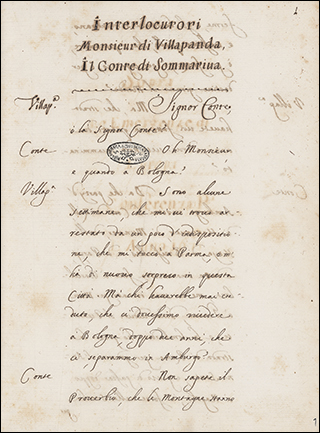 1
Interlocutori
Monsieur di Villapanda
Il Conte di Sommariva
Villap.ᵃ Signor Conte,
ò la Signor Conte
Conte Oh Monsieur
e quando à Bologna?
Villap.ᵃ Sono alcune
settimane che mi ci trovo ar
restato da un poco d'indisposizio
ne, che mi toccò à Parma, e m'
hà di nuovo sorpreso in questa
Città. Mà chi haverebbe mai cre
duto, che ci dovessimo rivedere
à Bologna doppo sei anni, che
ci separammo in Amburgo?
Conte Non sapete il
Proverbio, che le Montagne stanno